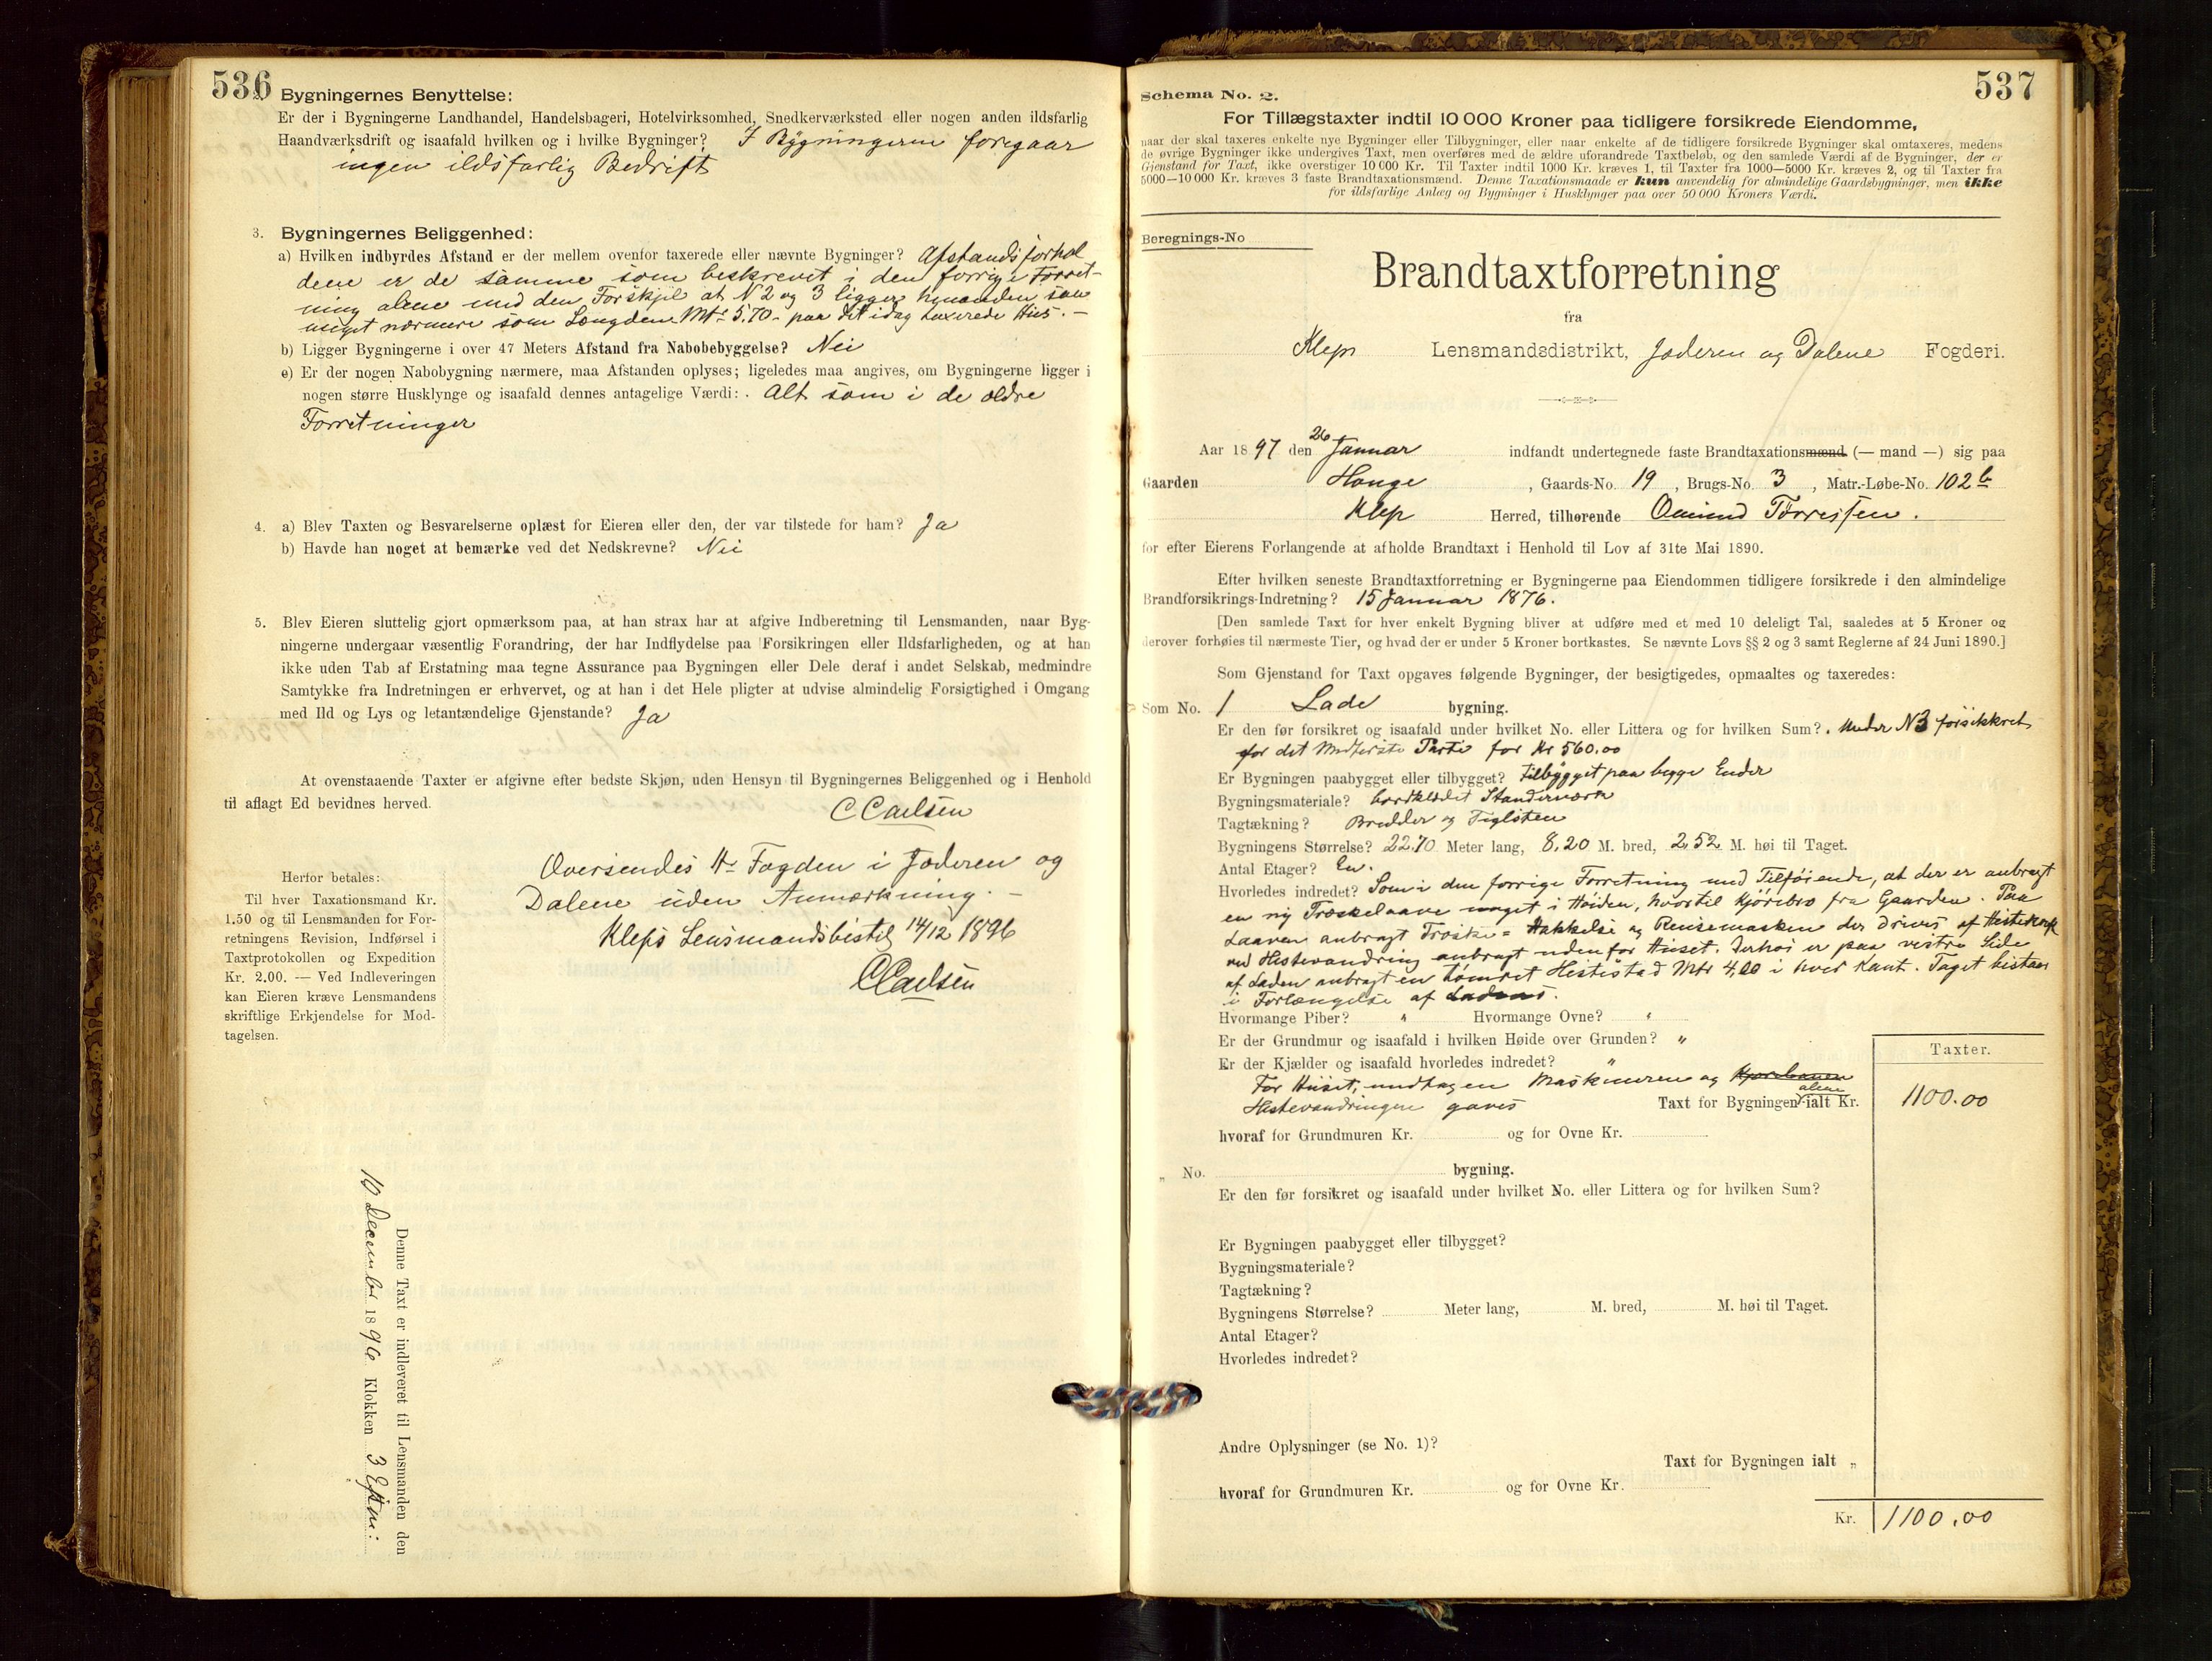 536
2. Bygningernes Benyttelse:
Er der i Bygningerne Landhandel, Handelsbageri, Hotelvirksomhed, Snedkerværksted eller nogen anden ildsfarlig
Haandværksdrift og isaafald hvilken og i hvilke Bygninger? I Bygningerne foregaar
ingen ildsfarlig Bedrift
3. Bygningernes Beliggenhed:
a) Hvilken indbyrdes Afstand er der mellem ovenfor taxerede eller nævnte Bygninger? Afstandsforhol
dene er de samme som beskrevet i den forrige Forret-
ning alene med den Forskjel at N 2 og 3 ligger hinanden saa
meget nærmere som Længden Mtr 5,70 - paa det idag taxerede Hus. -
b) Ligger Bygningerne i over 47 Meters Afstand fra Nabobebyggelse? Nei
c) Er der nogen Nabobygning nærmere, maa Afstanden oplyses; ligeledes maa angives, om Bygningerne ligger i
nogen større Husklynge og isaafald dennes antagelige Værdi: Alt som i de ældre
Forretninger
4. a) Blev Taxten og Besvarelserne oplæst for Eieren eller den, der var tilstede for ham? Ja
b) Havde han noget at bemærke ved det Nedskrevne? Nei
5. Blev Eieren sluttelig gjort opmærksom paa, at han strax har at afgive Indberetning til Lensmanden, naar Byg-
ningerne undergaar væsentlig Forandring, der har Indflydelse paa Forsikringen eller Ildsfarligheden, og at han
ikke uden Tab af Erstatning maa tegne Assurance paa Bygningen eller Dele deraf i andet Selskab, medmindre
Samtykke fra Indretningen er erhvervet, og at han i det Hele pligter at udvise almindelig Forsigtighed i Omgang
med Ild og Lys og letantændelige Gjenstande? Ja
At ovenstaaende Taxter er afgivne efter bedste Skjøn, uden Hensyn til Bygningernes Beliggenhed og i Henhold
til aflagt Ed bevidnes herved.
C Carlsen
Oversendes Hr Fogden i Jæderen og
Dalene uden Anmærkning. -
Kleps Lensmandsbestil 14/12 1896
C Carlsen
Herfor betales:
Til hver Taxationsmand Kr.
1.50 og til Lensmanden for For-
retningens Revision, Indførsel i
Taxtprotokollen og Expedition
Kr. 2.00. — Ved Indleveringen
kan Eieren kræve Lensmandens
skriftlige Erkjendelse for Mod-
tagelsen.
Denne Taxt er indleveret til Lensmanden den
10 December 1896 Klokken 3 Eftm:
537
Schema No. 2.
For Tillægstaxter indtil 10 000 Kroner paa tidligere forsikrede Eiendomme,
naar der skal taxeres enkelte nye Bygninger eller Tilbygninger, eller naar enkelte af de tidligere forsikrede Bygninger skal omtaxeres, medens
de øvrige Bygninger ikke undergives Taxt, men overføres med de ældre uforandrede Taxtbeløb, og den samlede Værdi af de Bygninger, der er
Gjenstand for Taxt, ikke overstiger 10 000 Kr. Til Taxter indtil 1000 Kr. kræves 1, til Taxter fra 1000—5000 Kr. kræves 2, og til Taxter fra
5000—10 000 Kr. kræves 3 faste Brandtaxationsmænd. Denne Taxationsmaade er kun anvendelig for almindelige Gaardsbygninger, men ikke
for ildsfarlige Anlæg og Bygninger i Husklynger paa over 50 000 Kroners Værdi.
Beregnings-No
Brandtaxtforretning
fra
Klep Lensmandsdistrikt, Jæderen og Dalene Fogderi.
Aar 1897 den 26 Januar indfandt undertegnede faste Brandtaxationsmænd (— mand —) sig paa
Gaarden Houge, Gaards-No. 19, Brugs-No. 3, Matr.-Løbe-No. 102 b
Klep Herred, tilhørende Omund Torressen.
for efter Eierens Forlangende at afholde Brandtaxt i Henhold til Lov af 31te Mai 1890.
Efter hvilken seneste Brandtaxtforretning er Bygningerne paa Eiendommen tidligere forsikrede i den almindelige
Brandforsikrings-Indretning? 15 Januar 1876.
[Den samlede Taxt for hver enkelt Bygning bliver at udføre med et med 10 deleligt Tal, saaledes at 5 Kroner og
derover forhøies til nærmeste Tier, og hvad der er under 5 Kroner bortkastes. Se nævnte Lovs §§ 2 og 3 samt Reglerne af 24 Juni 1890.]
Som Gjenstand for Taxt opgaves følgende Bygninger, der besigtigedes, opmaaltes og taxeredes:
Som No. 1 Lade bygning.
Er den før forsikret og isaafald under hvilket No. eller Littera og for hvilken Sum? Under N 3 forsikkret
for det Parti for Kr 560.00
Er Bygningen paabygget eller tilbygget? tilbygget paa begge Ender
Bygningsmateriale? bordklædet Standerværk
Tagtækning? Brædder og Tiglsten
Bygningens Størrelse? 22,70 Meter lang, 8,20 M. bred, 2,52 M. høi til Taget.
Antal Etager? En.
Hvorledes indredet? Som i den forrige Forretning med Tilføiende, at der er anbragt
en ny Træskelaave i Høiden, hvortil Kjørebro fra Gaarden. Paa
Laaven anbragt Træske= Hakkelse og Rensemasken der drives af Hestekraft
ved Hestevandring anbragt udenfor Huset. Derhos er paa vestre Side
af Laden anbragt en tømret Hestestad Mtr 4,00 i hver Kant. Taget bestaar
i Forlængelse af Ladens.
Hvormange Piber? " Hvormange Ovne? "
Er der Grundmur og isaafald i hvilken Høide over Grunden? "
Er der Kjælder og isaafald hvorledes indredet? "
For Huset, undtagen Maskineren og Kjørebanen
Hestevandringen gaves Taxt for Bygningen alene ialt Kr.
Taxter.
1100.00
hvoraf for Grundmuren Kr. og for Ovne Kr.
" No. bygning.
Er den før forsikret og isaafald under hvilket No. eller Littera og for hvilken Sum?
Er Bygningen paabygget eller tilbygget?
Bygningsmateriale?
Tagtækning?
Bygningens Størrelse? Meter lang, M. bred, M. høi til Taget.
Antal Etager?
Hvorledes indredet?
Andre Oplysninger (se No. 1)?
Taxt for Bygningen ialt "
hvoraf for Grundmuren Kr. og for Ovne Kr.
Kr. 1100.00